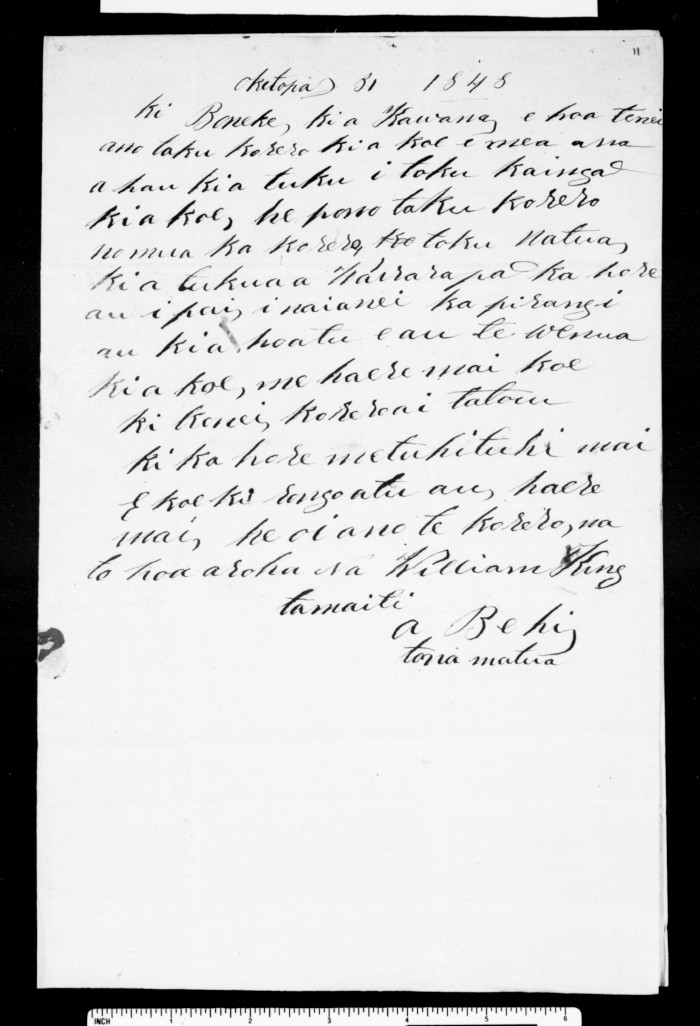 11
Oketopa 31 1848
ki Boneke, ki a Kawana, e hoa tenei
ano taku korero ki a koe e mea ana
a hau kia tuku i toku kainga
kia koe, he pono taku korero
no mua ka korero, ke toku Matua,
kia tukua a Wairarapa ka hore
au i pai, inaianei ka pirangi
au kia hoatu e au te wenua
kia koe, me haere mai koe
ki konei, korero ai tatou
ki ka hore me tuhituhi mai
e koe ki rongo atu au, haere
mai, he oi ano te korero, na
to hoa aroha Na William King
tamaiti
a Te Behi,
tona matua
INCH 1 2 3 4 5 6